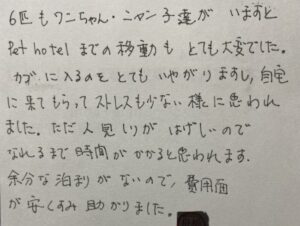 6匹もワンちゃん・ニャン子達が いますと
Pet hotel までの移動も とても大変でした。
カゴに入るのを とても いやがりますし、自宅
に来てもらって ストレスも少ない様に思われ
ました。ただ人見しりが はげしいので
なれるまで時間が かかると思われます。
余分な泊まりがないので、費用面
が安くすみ助かりました。